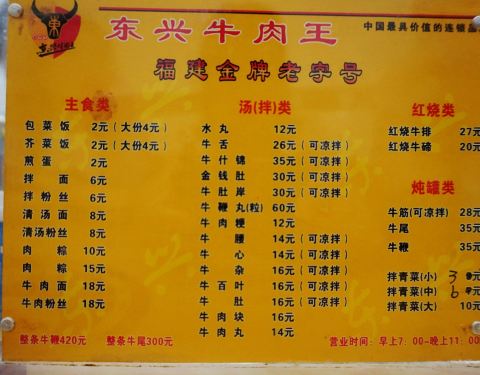 東
东兴牛肉王
中国最具价值的连锁品
福建金牌老字号
主食类
包菜饭 2元(大份4元)
芥菜饭 2元(大份4元)
煎蛋 2元
拌面 6元
拌粉丝 6元
清汤面 8元
清汤粉丝 8元
肉粽 10元
肉粽 15元
牛肉面 18元
牛肉粉丝 18元
整条牛鞭420元 整条牛尾300元
汤(拌)类
水丸 12元
牛舌 26元(可凉拌)
牛什锦 35元(可凉拌)
金钱肚 30元(可凉拌)
牛肚岸 30元(可凉拌)
牛鞭丸(粒) 60元
牛肉粳 12元
牛腰 14元(可凉拌)
牛心 14元(可凉拌)
牛杂 16元(可凉拌)
牛百叶 16元(可凉拌)
牛肚 16元(可凉拌)
牛肉块 16元
牛肉丸 14元
红烧类
红烧牛排 27元
红烧牛蹄 20元
炖罐类
牛筋(可凉拌) 28元
牛尾 35元
牛鞭 35元
拌青菜(小) 3元
拌青菜(中) 6元
拌青菜(大) 10元
营业时间：早上7：00-晚上11：00